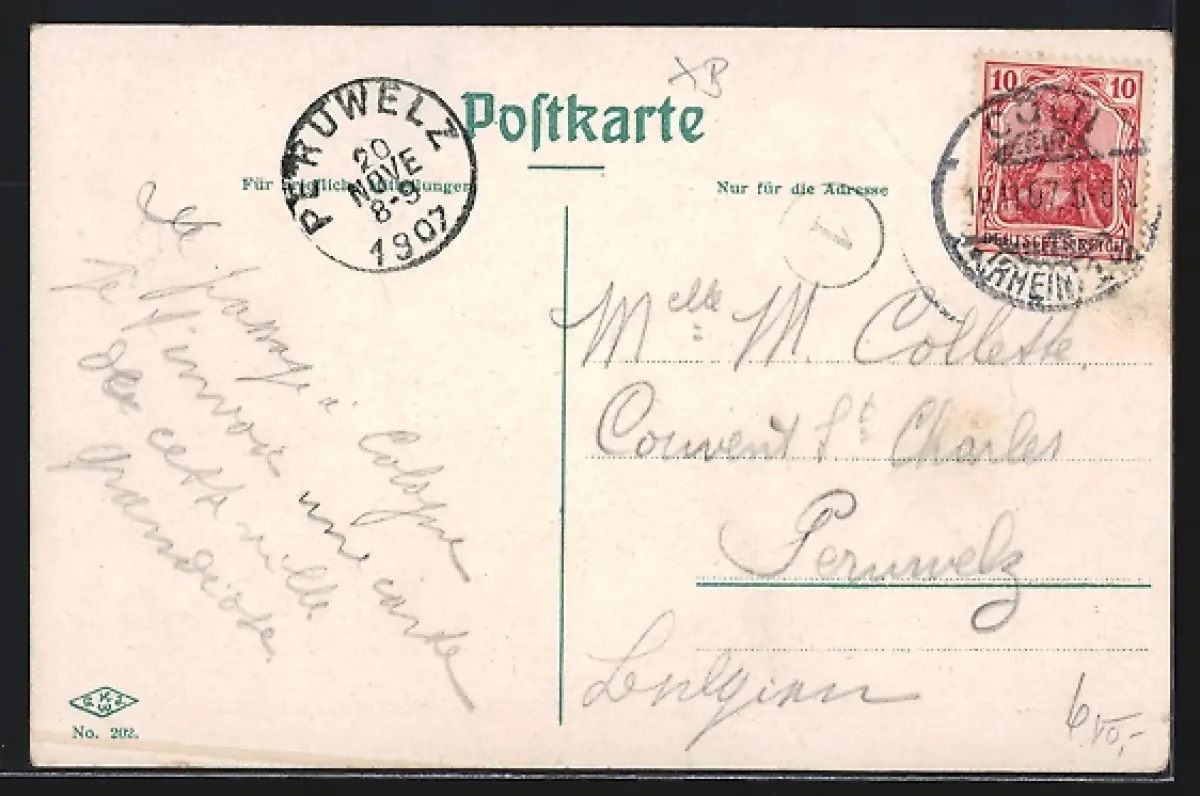 XB
Postkarte
PERUWELZ
20
NOVE
8-9
1907
Für briefliche Mitteilungen
Nur für die Adresse
10 10
CÖLN
19.11.07. 5-6
DEUTSCHES REICH
(RHEIN)
1
De passage à Cologne
Je t'envoie une carte
de cette ville
grandiose.
Melle M. Collette
Couvent St Charles
Peruwelz
Belgien
No. 202.
6,50,-